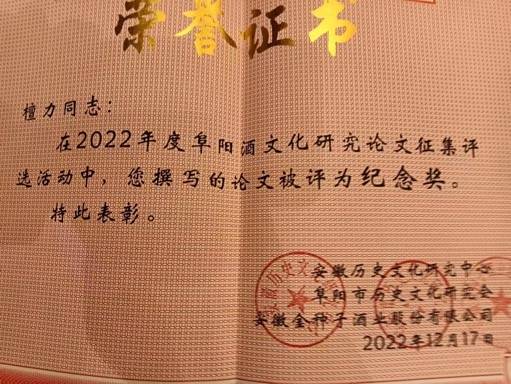 荣誉证书
檀力同志：
在2022年度阜阳酒文化研究论文征集评
选活动中，您撰写的论文被评为纪念奖。
特此表彰。
安徽历史文化研究中心
阜阳市历史文化研究会
安徽金种子酒业股份有限公司
2022年12月17日